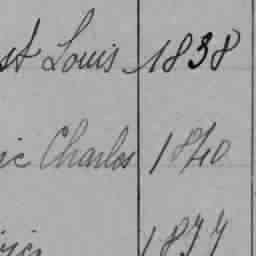 st Louis 1838
ic Charles 1840
1877